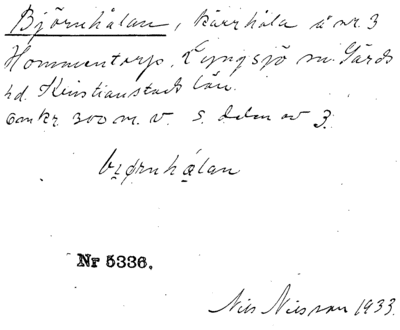 Björnhålan, kärrhåla å nr. 3
Hommentorp, Lyngsjö sn. Gärds
hd. Kristianstads län.
omkr. 300 m. v. s. delen av 3.
bi̯ørnhålan
Nr 5336.
Nils Nilsson 1933.